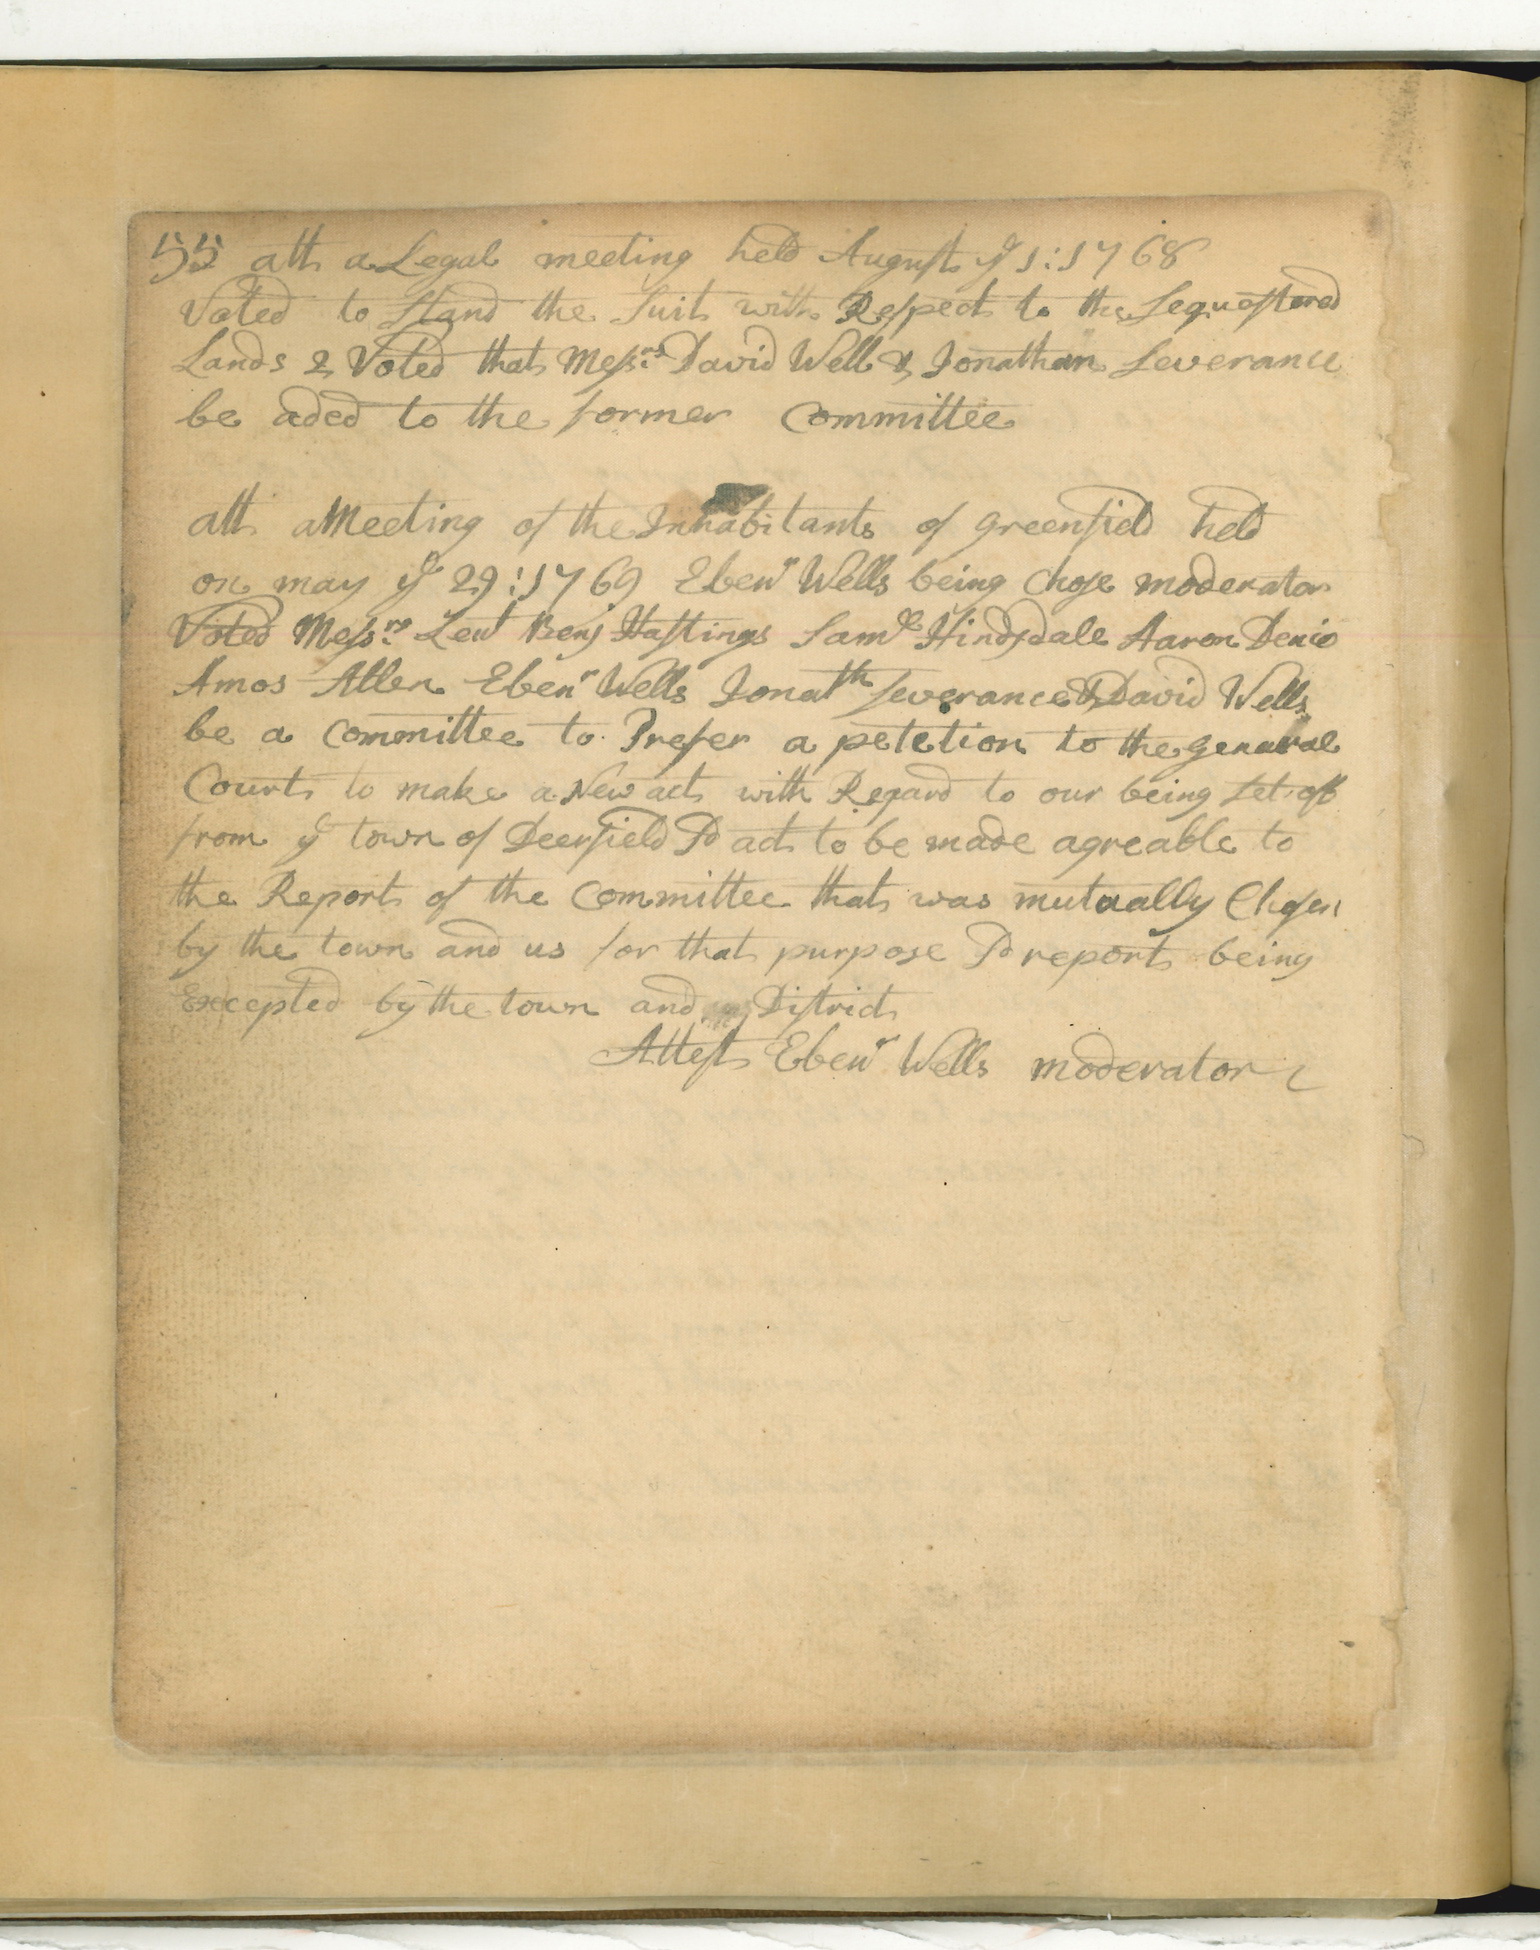 55 att a Legal meeting held August ye 1:1768
Voted to Stand the Suit with Respect to the Sequestered
Lands & Voted that Messrs David Well & Jonathan Severance
be aded to the former Committee
att a Meeting of the Inhabitants of greenfield held
on may ye 29:1769 Ebenr Wells being Chose moderator
Voted Messrs Leut Benj Hastings Samll Hindsdale Aaron Denio
Amos Allen Ebenr Wells Jonath Severance & David Wells
be a Committee to Prefer a petetion to the general
Court to make a New act with Regard to our being Set off
from ye town of Deerfield Sd act to be made agreable to
the Report of the Committee that was mutually Chosen
by the town and us for that purpose Sd report being
Excepted by the town and District
Attest Ebenr Wells moderator